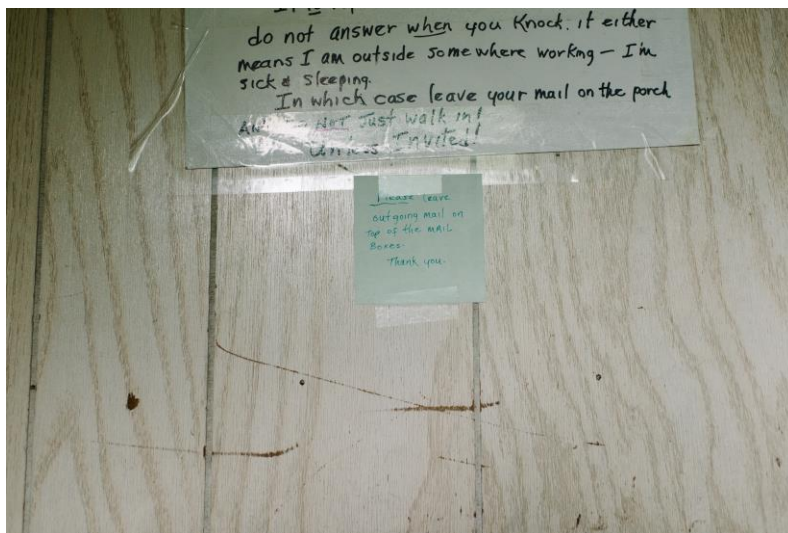 do not answer when you Knock. it either
means I am outside somewhere working – I'm
sick & sleeping.
In which case leave your mail on the porch
NOT Just walk in!
Unless Invited!
Please leave
outgoing mail on
Top of the MAIL
Boxes.
Thank you.